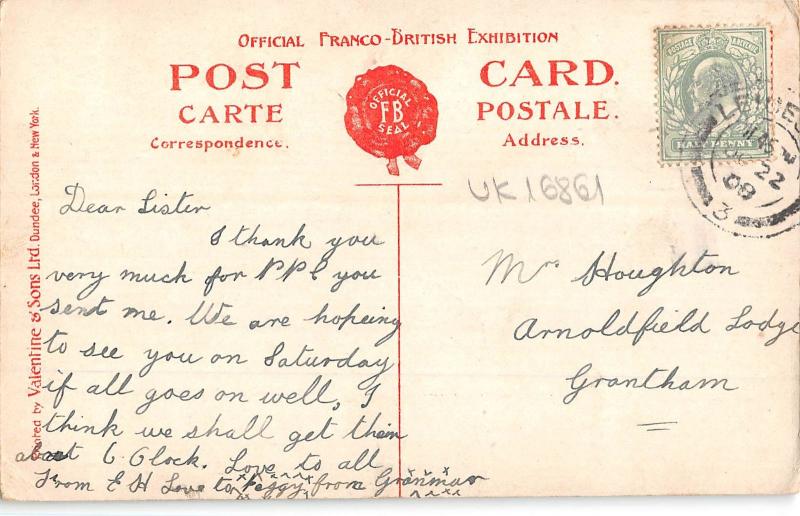 OFFICIAL FRANCO-BRITISH EXHIBITION
POST CARD.
CARTE POSTALE.
Correspondence. Address.
OFFICIAL
FB
SEAL
POSTAGE
HALFPENNY
22
08
3
UK16861
Dear Sister
I thank you
very much for PPC you
sent me. We are hopeing
to see you on Saturday
if all goes on well, I
think we shall get them
about 6 Clock. Love to all
From E H Love to Peggy from Granmar
Mrs Houghton
Arnoldfield Lodge
Grantham
by Valentine & Sons Ltd. Dundee, London & New York.